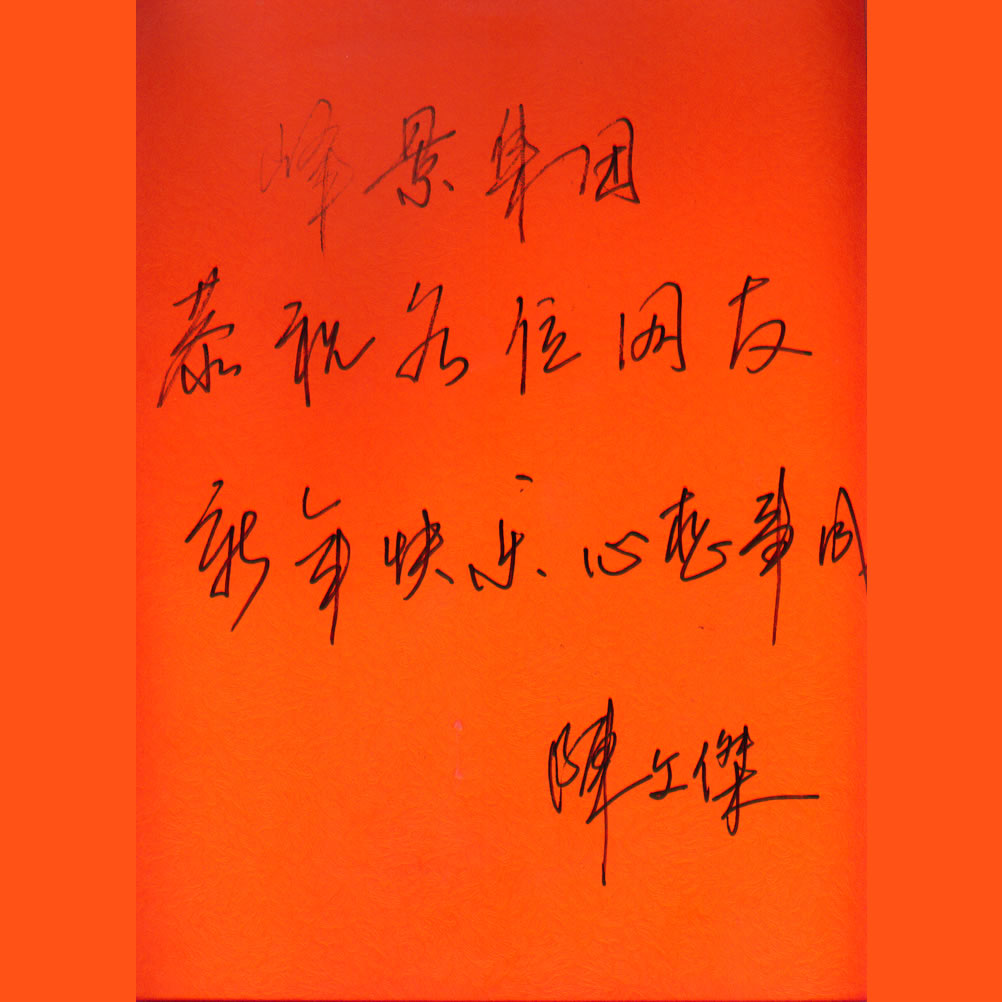 峰景集团
恭祝各位网友
新年快乐 心想事成
陳文傑